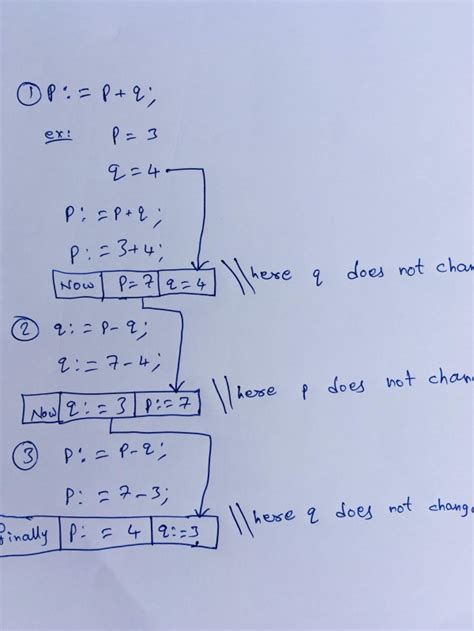 ① P:= P+q;
ex: P=3
q=4
P:=P+q;
P:=3+4;
Now P=7 q=4 \\here q does not chan
② q:=P-q;
q:=7-4;
Now q:=3 P:=7 \\here p does not chan
③ P:=P-q;
P:=7-3;
Finally P:=4 q:=3. \\here q does not chang